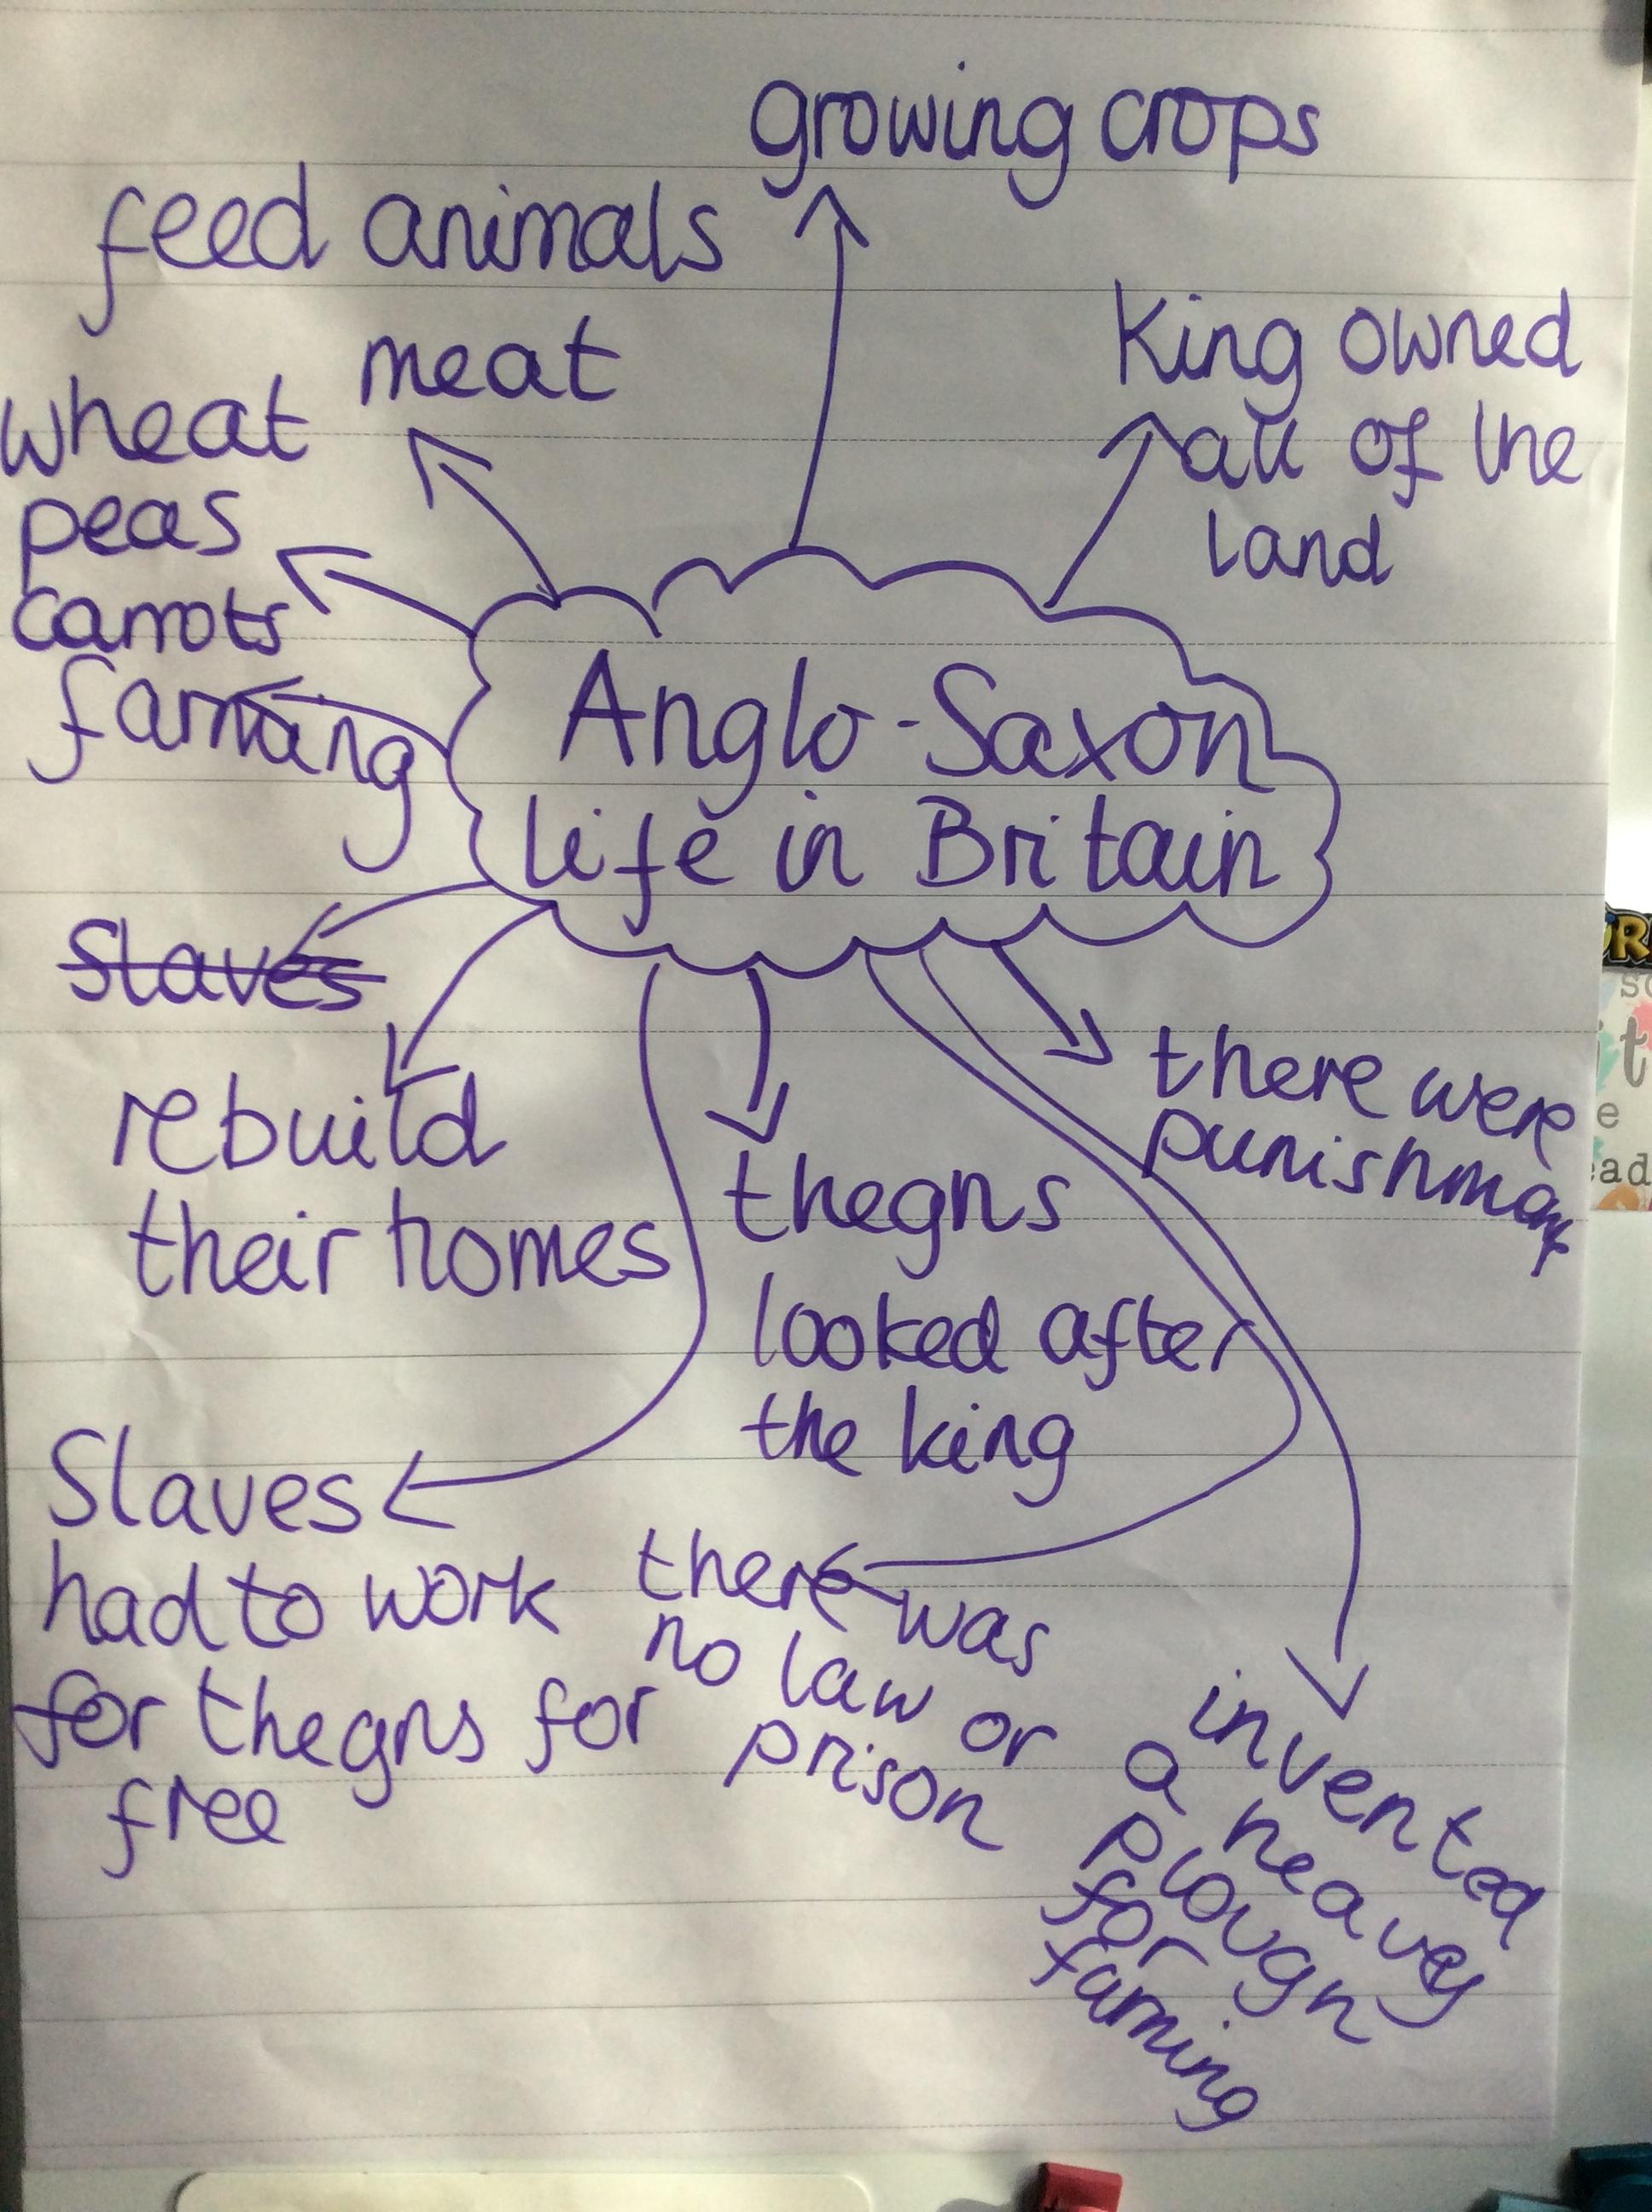 growing crops
feed animals
meat
King owned
all of the
land
wheat
peas
carrots
farming
Anglo-Saxon
life in Britain
Slaves
rebuild
their homes
thegns
looked after
the king
there were
Slaves
had to work
for thegns for
free
there was
no law or
prison
invented
a heavey
plough
for
farming